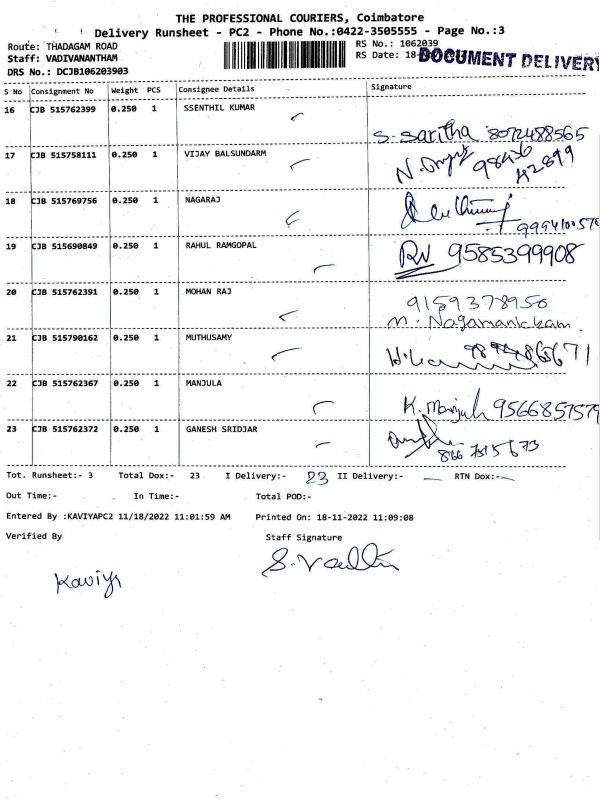 THE PROFESSIONAL COURIERS, Coimbatore
Delivery Runsheet - PC2 - Phone No.:0422-3505555 - Page No.:3
Route: THADAGAM ROAD
RS No.: 1062039
Staff: VADIVANANTHAM
RS Date: 18-
DOCUMENT DELIVERY
DRS No.: DCJB106203903
S No Consignment No Weight PCS Consignee Details Signature
16 CJB 515762399 0.250 1 SSENTHIL KUMAR
S. Saritha 8072488565
17 CJB 515758111 0.250 1 VIJAY BALSUNDARM
18 CJB 515769756 0.250 1 NAGARAJ
19 CJB 515690849 0.250 1 RAHUL RAMGOPAL
9585399908
20 CJB 515762391 0.250 1 MOHAN RAJ
9159378950
M. Nagamanickam
21 CJB 515790162 0.250 1 MUTHUSAMY
22 CJB 515762367 0.250 1 MANJULA
K. Manjula 9566857579
23 CJB 515762372 0.250 1 GANESH SRIDJAR
Tot. Runsheet:- 3 Total Dox:- 23 I Delivery:- 23 II Delivery:- — RTN Dox:- —
Out Time:- In Time:- Total POD:-
Entered By :KAVIYAPC2 11/18/2022 11:01:59 AM Printed On: 18-11-2022 11:09:08
Verified By Staff Signature
Kaviya